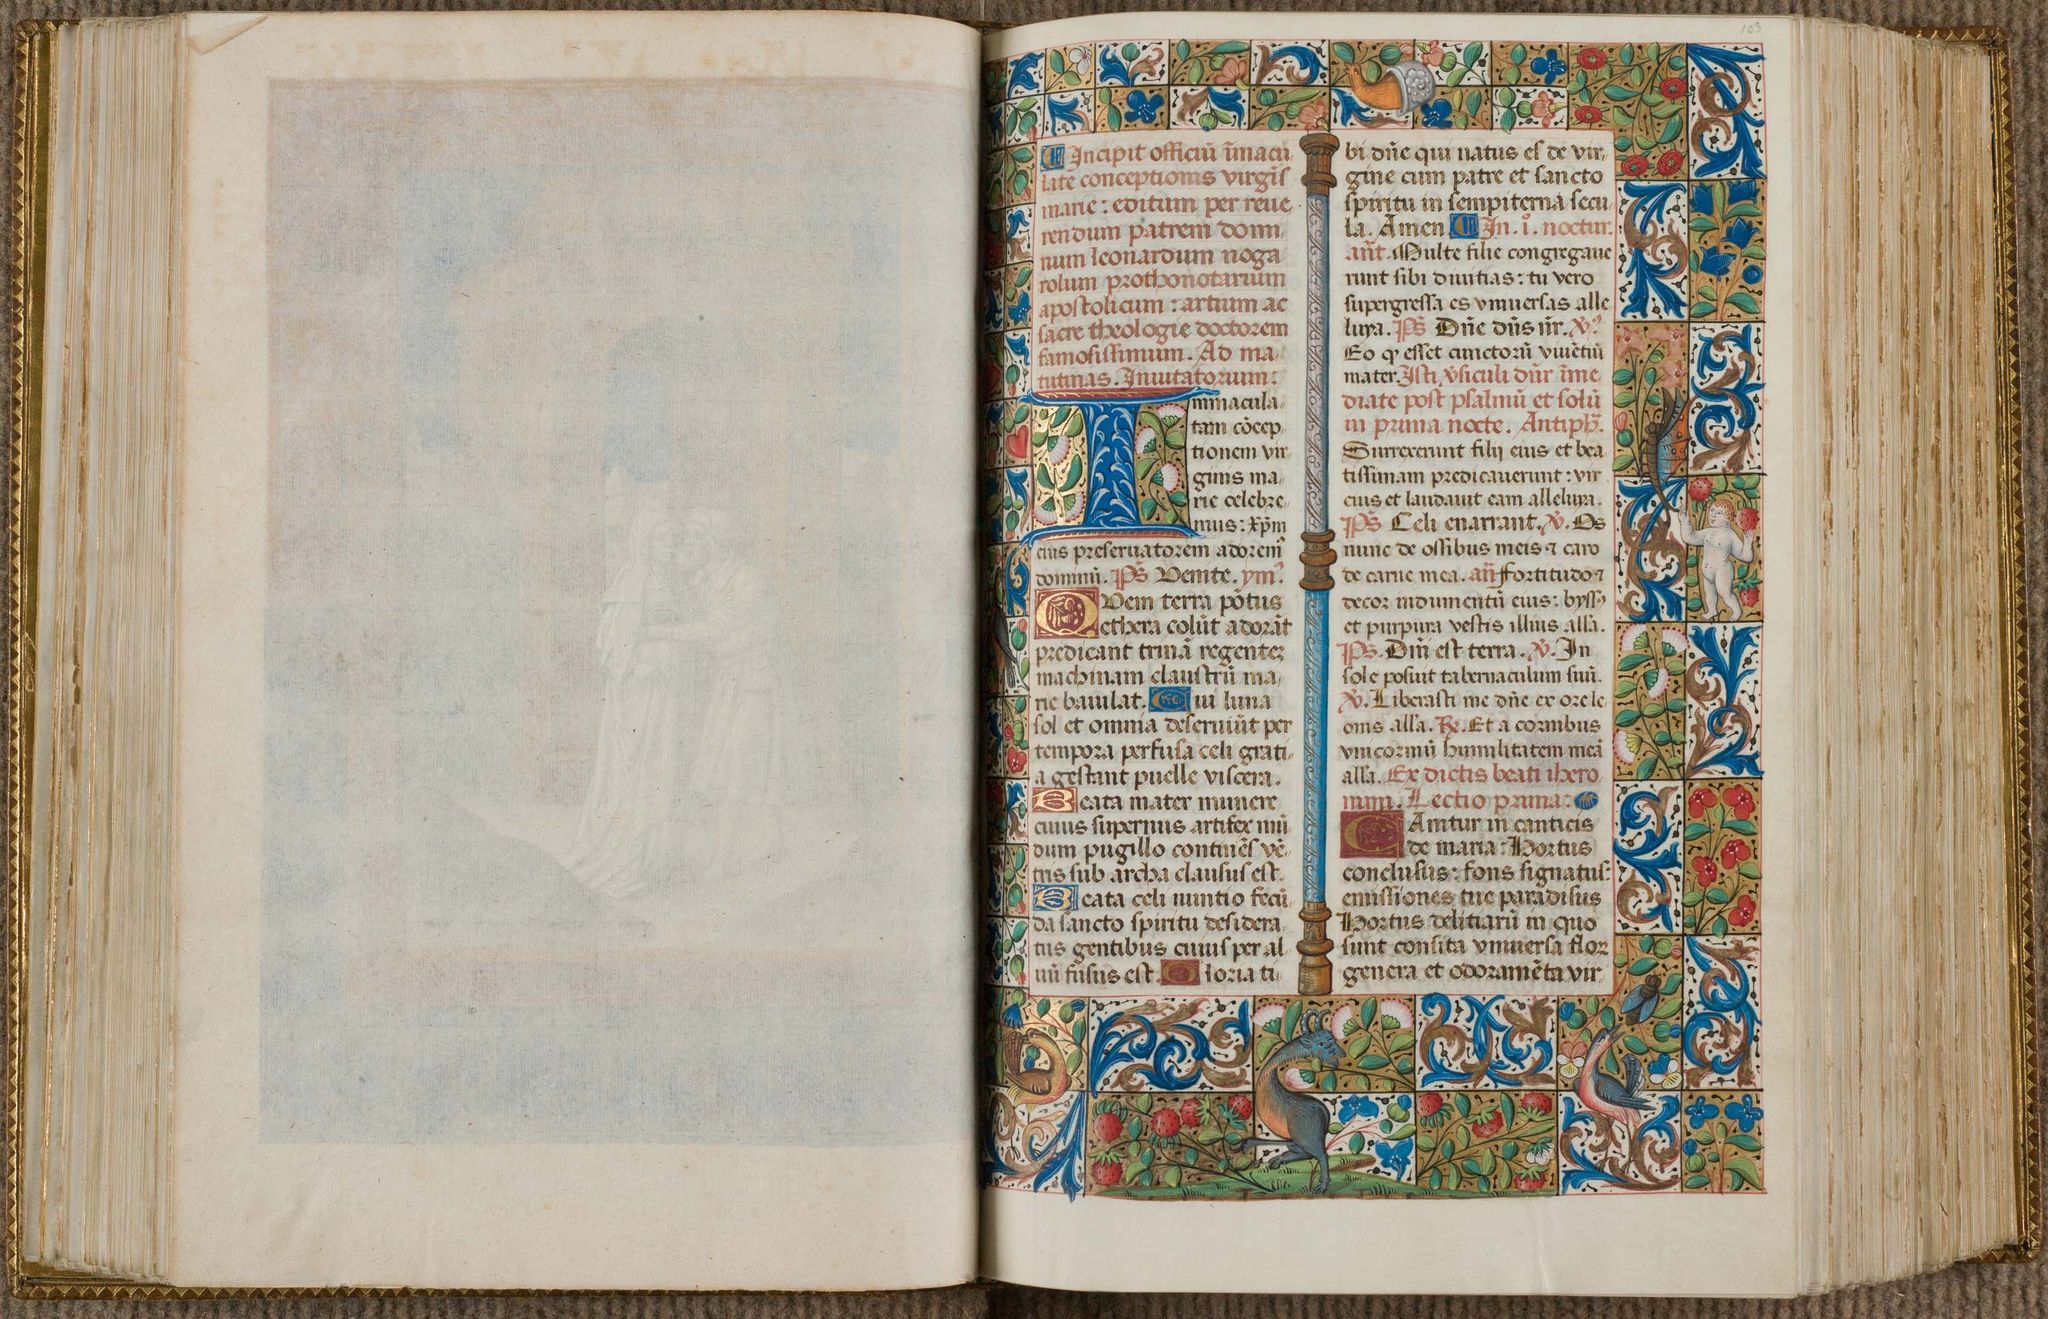 103
Incipit officiū īmacu
late conceptionis virgīs
marie: editum per reue
rendum patrem domi
num leonardum noga
rolum prothonotarium
apostolicum: artium ac
sacre theologie doctorem
famosissimum. Ad ma
tutinas. Inuitatorium:
Immacula
tam cōcep
tionem vir
ginis ma
rie celebre
mus: xp̄m
eius preseruatorem adorem9
dominū. Ps̄ Venite. ym9.
Qvem terra pōtus
ethera colūt adorāt
predicant trinā regentez
machinam claustrū ma
rie baiulat. Cui luna
sol et omnia deseruiūt per
tempora perfusa celi grati
a gestant puelle viscera.
Beata mater munere
cuius supernus artifex mū
dum pugillo continēs vē
tris sub archa clausus est.
Beata celi nuntio fecū
da sancto spiritu desidera
tus gentibus cuius per al
uū fusus est. Gloria ti
bi dn̄e qui natus es de vir
gine cum patre et sancto
spiritu in sempiterna secu
la. Amen In. i. noctur.
ant̄. Multe filie congregaue
runt sibi diuitias: tu vero
supergressa es vniuersas alle
luya. Ps̄ Dn̄e dn̄s n̄r. v̄.
Eo ꝙ esset cunctorū viuētiū
mater. Isti v̄siculi dn̄r īme
diate post psalmū et solū
in primo nocte. Antiph̄.
Surrexerunt filij eius et bea
tissimam predicauerunt: vir
eius et laudauit eam alleluya.
Ps̄ Celi enarrant. v̄. Os
nunc de ossibus meis ⁊ caro
de carne mea. an̄ fortitudo ⁊
decor indumentū eius: byss9
et purpura vestis illius alla.
Ps. Dn̄i est terra. v̄. In
sole posuit tabernaculum suū.
v̄. Liberasti me dn̄e ex ore le
onis alla. R̄. Et a cornibus
vnicorniū humilitatem meā
alla. Ex dictis beati ihero
nimi. Lectio prima:
Canitur in canticis
de maria: Hortus
conclusus: fons signatus:
emissiones tue paradisus
Hortus delitiarū in quo
sunt consita vniuersa florꝝ
genera et odoramēta vir